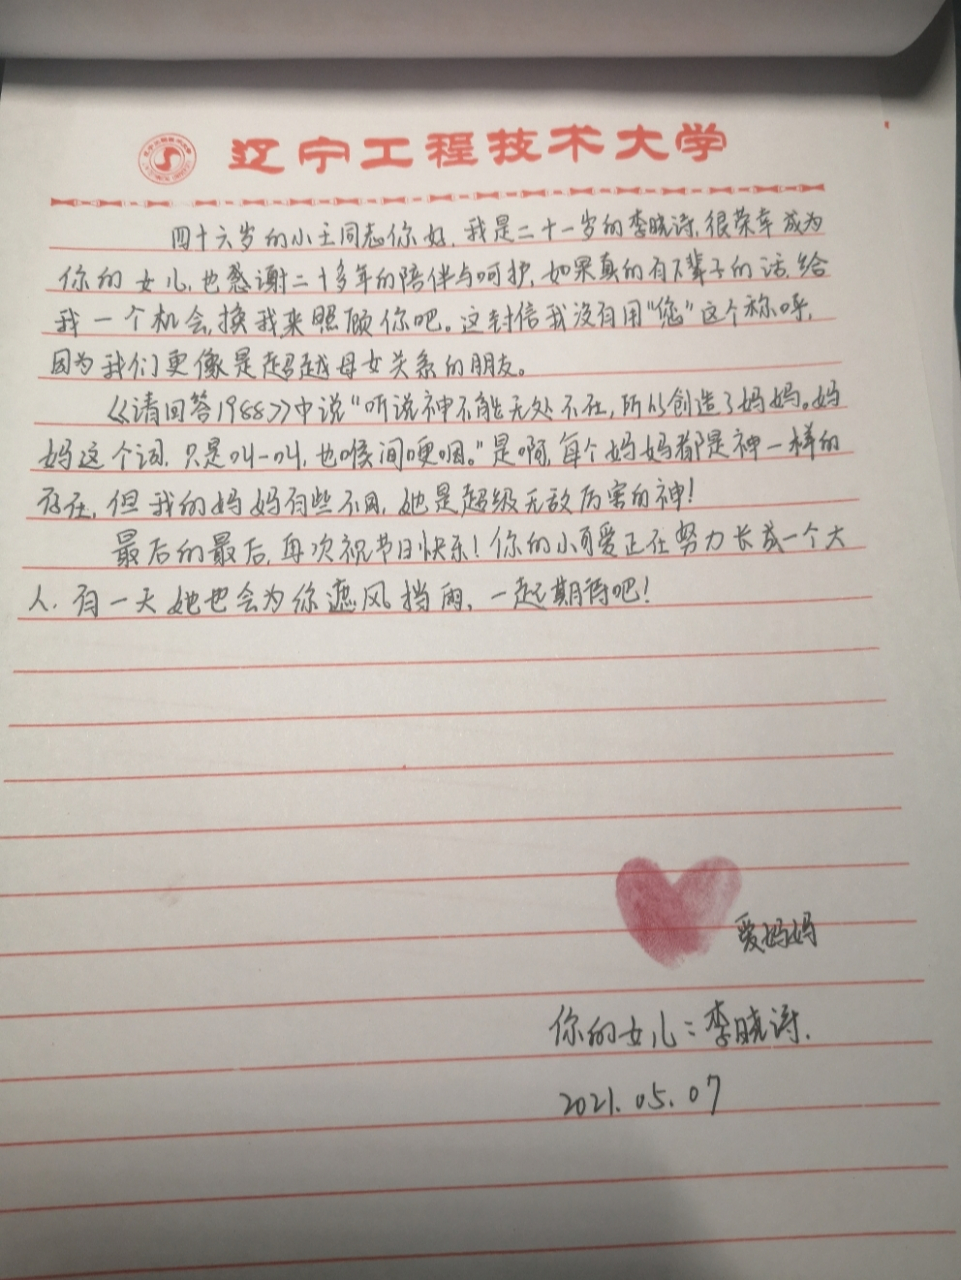 辽宁工程技术大学
四十六岁的小王同志你好,我是二十一岁的李晓涛,很荣幸成为
你的女儿,也感谢二十多年的陪伴与呵护,如果真的有下辈子的话,给
我一个机会,换我来照顾你吧。这封信我没有用"您"这个称呼,
因为我们更像是超越母女关系的朋友。
《请回答1988》中说"听说神不能无处不在,所以创造了妈妈。妈
妈这个词,只是叫一叫,也喉间哽咽。"是啊,每个妈妈都是神一样的
存在,但我的妈妈有些不同,她是超级无敌厉害的神!
最后的最后,再次祝节日快乐!你的小可爱正在努力长成一个大
人,有一天她也会为你遮风挡雨,一起期待吧!
爱妈妈
你的女儿:李晓涛.
2021.05.07